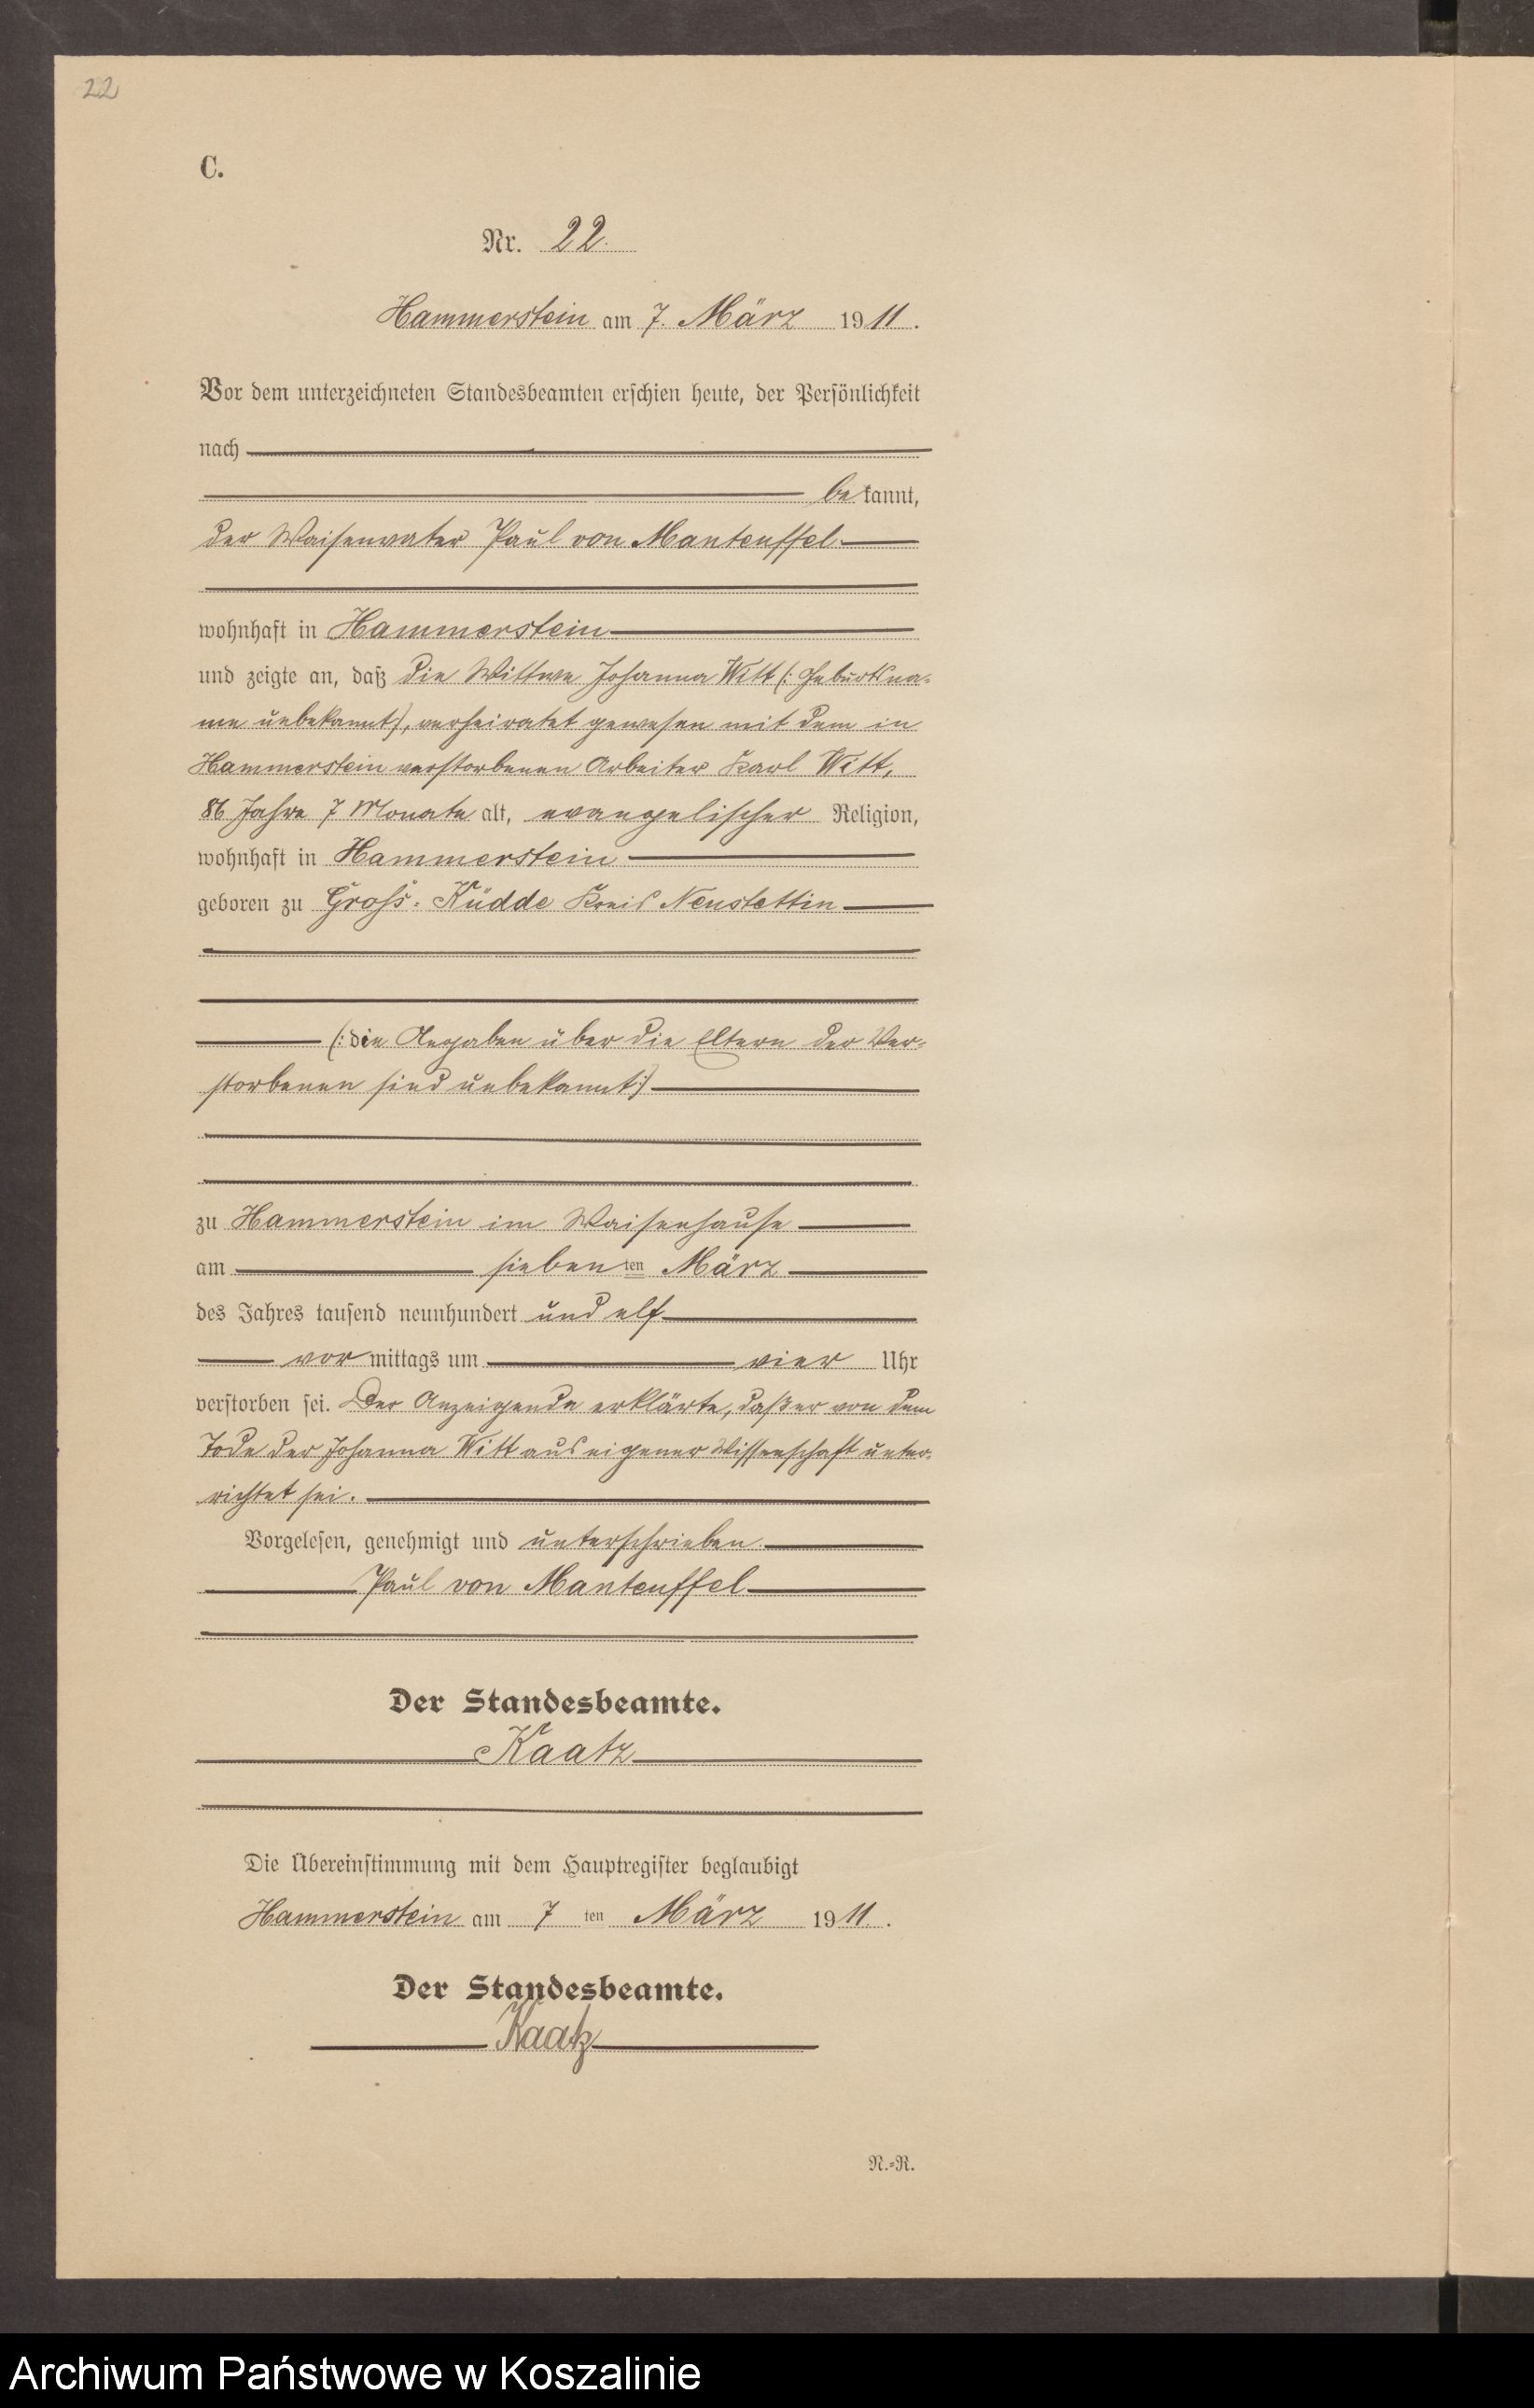 22
C.
Nr. 22.
Hammerstein am 7. März 1911.
Vor dem unterzeichneten Standesbeamten erschien heute, der Persönlichkeit
nach
bekannt,
der Waisenvater Paul von Manteuffel
wohnhaft in Hammerstein
und zeigte an, daß die Wittwe Johanna Witt (: Geburtsna-
me unbekannt), verheiratet gewesen mit dem in
Hammerstein verstorbenen Arbeiter Karl Witt,
86 Jahre 7 Monate alt, evangelischer Religion,
wohnhaft in Hammerstein
geboren zu Groß-Küdde Kreis Neustettin
(: die Angaben über die Eltern der Ver-
storbenen sind unbekannt :)
zu Hammerstein im Waisenhause
am siebenten März
des Jahres tausend neunhundert und elf
vormittags um vier Uhr
verstorben sei. Der Anzeigende erklärte, daß er von dem
Tode der Johanna Witt aus eigener Wissenschaft unter-
richtet sei.
Vorgelesen, genehmigt und unterschrieben.
Paul von Manteuffel
Der Standesbeamte.
Kaatz
Die Übereinstimmung mit dem Hauptregister beglaubigt
Hammerstein am 7ten März 1911.
Der Standesbeamte.
Kaatz
N.-R.
Archiwum Państwowe w Koszalinie